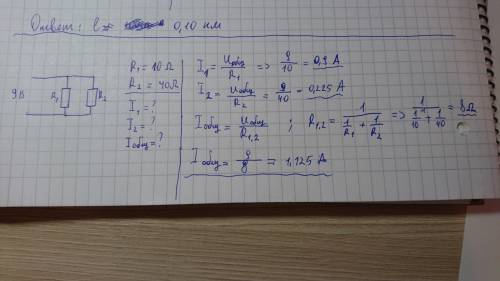 Ответ: l = 0,10 нм
9 В R₁ R₂
R₁ = 10 Ω
R₂ = 40 Ω
I₁ = ?
I₂ = ?
Iобщ = ?
I₁ = Uобщ / R₁ => 9/10 = 0,9 А
I₂ = Uобщ / R₂ = 9/40 = 0,225 А
Iобщ = Uобщ / R₁,₂ ; R₁,₂ = 1 / (1/R₁ + 1/R₂) => 1 / (1/10 + 1/40) = 8 Ω
Iобщ = 9/8 = 1,125 А